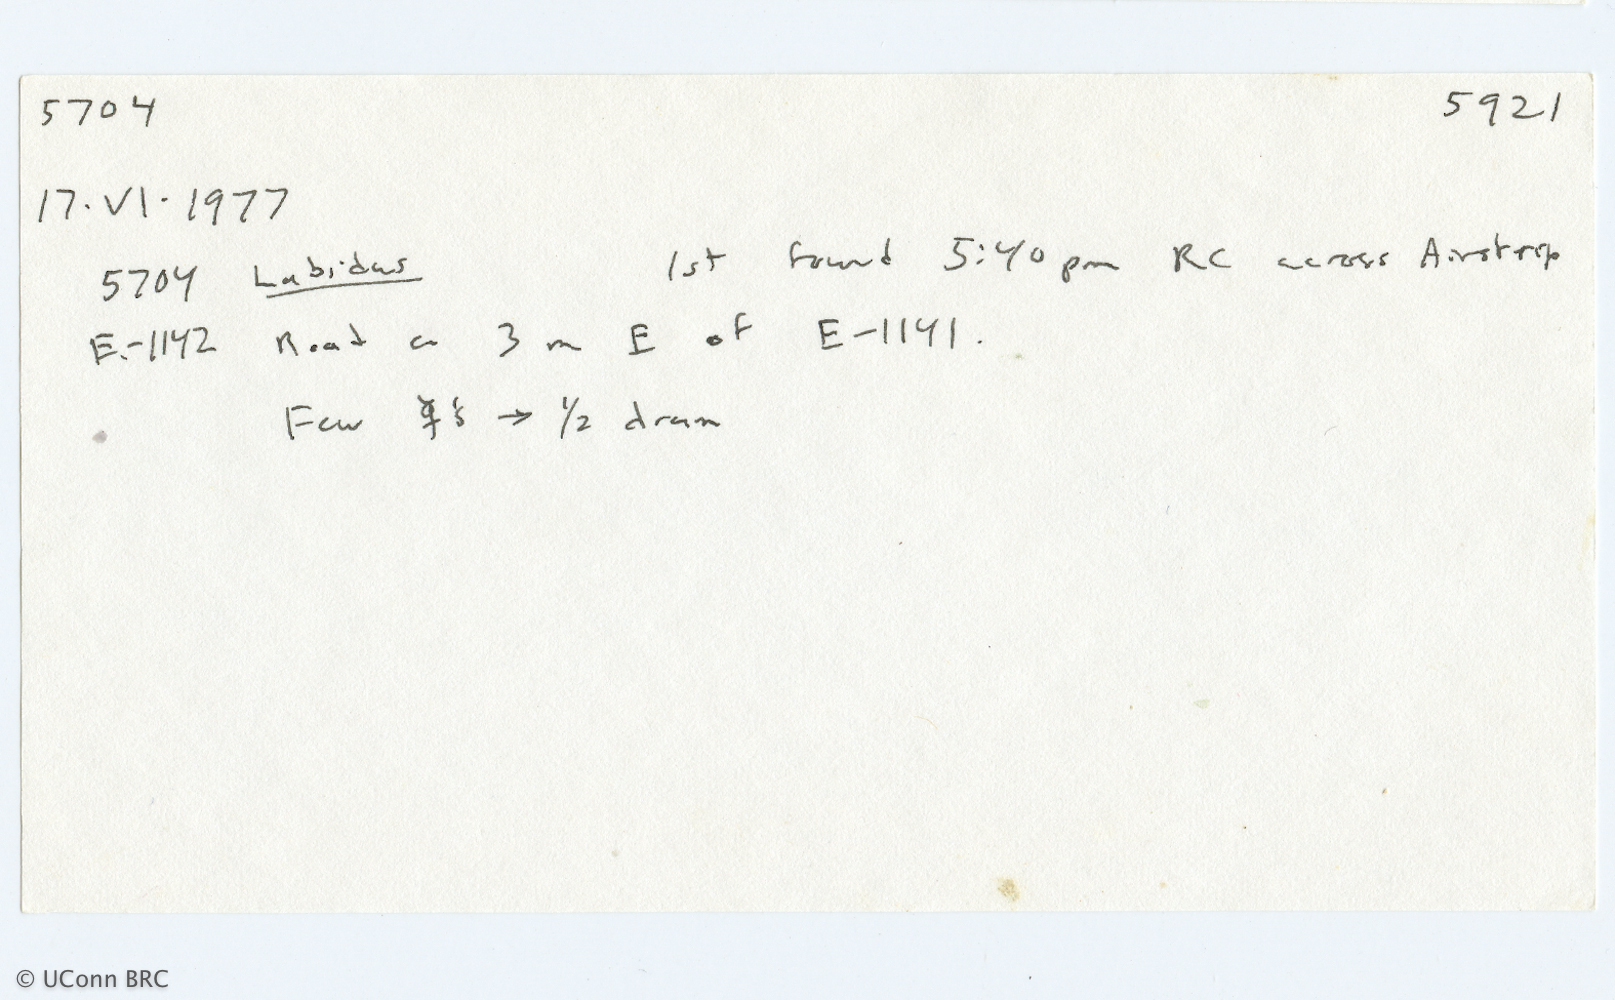 5704 5921
17.VI.1977
5704 Labidus 1st found 5:40 pm RC across Airstrip
E-1142 Road ca 3 m E of E-1141.
Few ☿'s → 1/2 dram
© UConn BRC